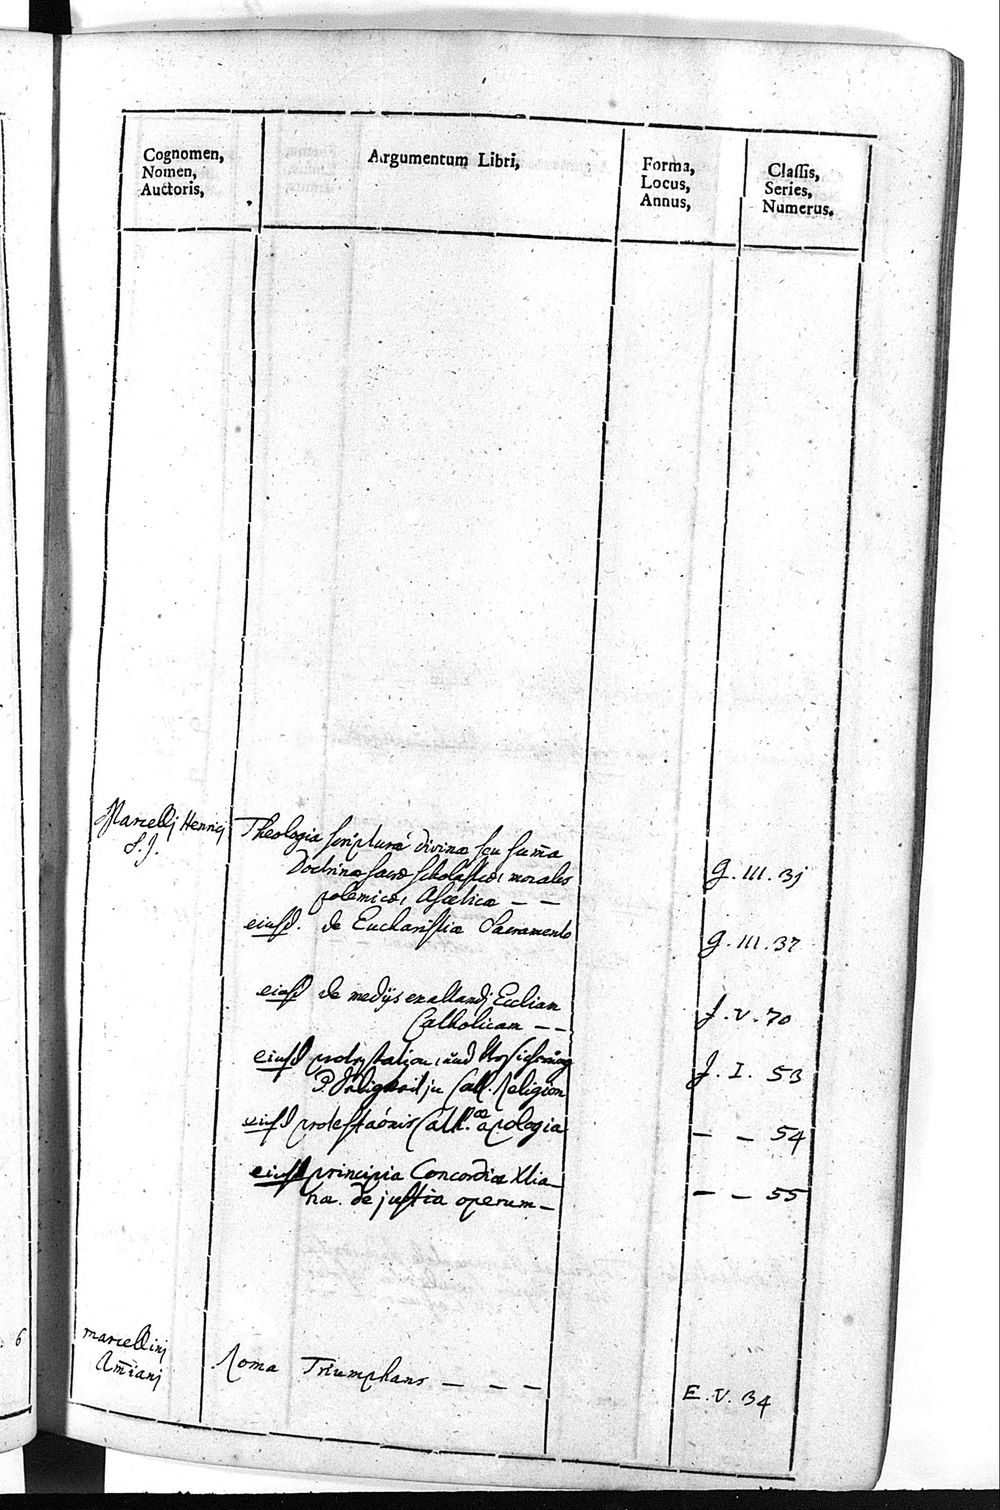 Cognomen,
Nomen,
Auctoris,
Argumentum Libri,
Forma,
Locus,
Annus,
Classis,
Series,
Numerus.
Marcellj Henricj
S. J.
Theologia scripturæ divinæ seu sum̄a
Doctrinæ sacræ scholasticæ, morales
polemicæ, Asceticæ – –
G. III. 31
eiusd. de Eucharistiæ Sacramento
G. III. 37
eiusd de medijs exaltandj Ecclian
Catholicam – –
J. V. 70
eiusd protestation, und
P. Religion
J. I. 53
eiusd protestaōnis Cath.æ apologia
– – 54
eiusd principia Concordiæ Xlia-
næ. de justia operum –
– – 55
6
marcellinj
Am̄ianj
Roma Triumphans – – –
E. V. 34